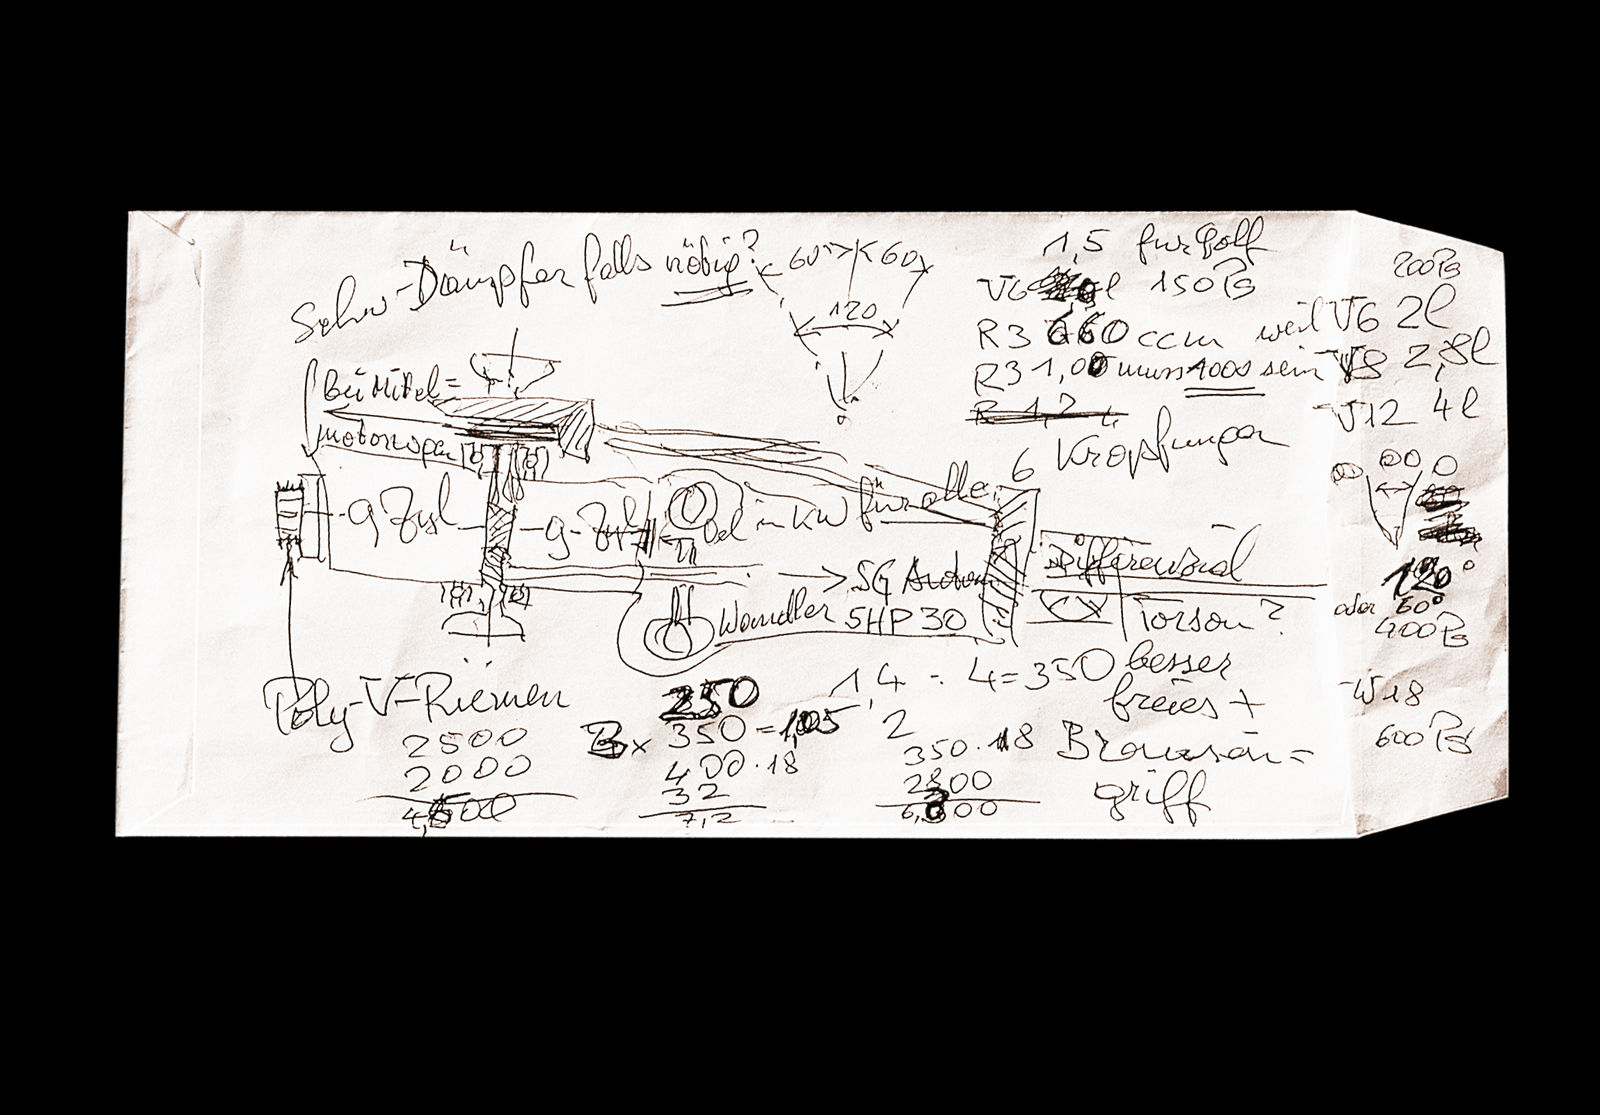 Schw-Dämpfer falls nötig?
60° 60
120
1,5 für Golf
V6 l 150 PS
R3 660 ccm weil V6 2l
R3 1,00 muss 1000 sein V8 2,8l
R 1,2
V12 4l
200 PS
6 Kröpfungen
Bei Mittel=
motorwagen
9 Zyl
9-Zyl
Öl in KW für alle
SG
Wandler 5HP30
Differenzial
Torsen?
120°
oder 60°
400 PS
W18
600 PS
Poly-V-Riemen
2500
2000
4,500
250
3x 350 = 1,05
400 · 18
32
7,2
1,4 : 4 = 350 besser
2
freies +
350 · 18
2800
6,300
Brausen=
griff